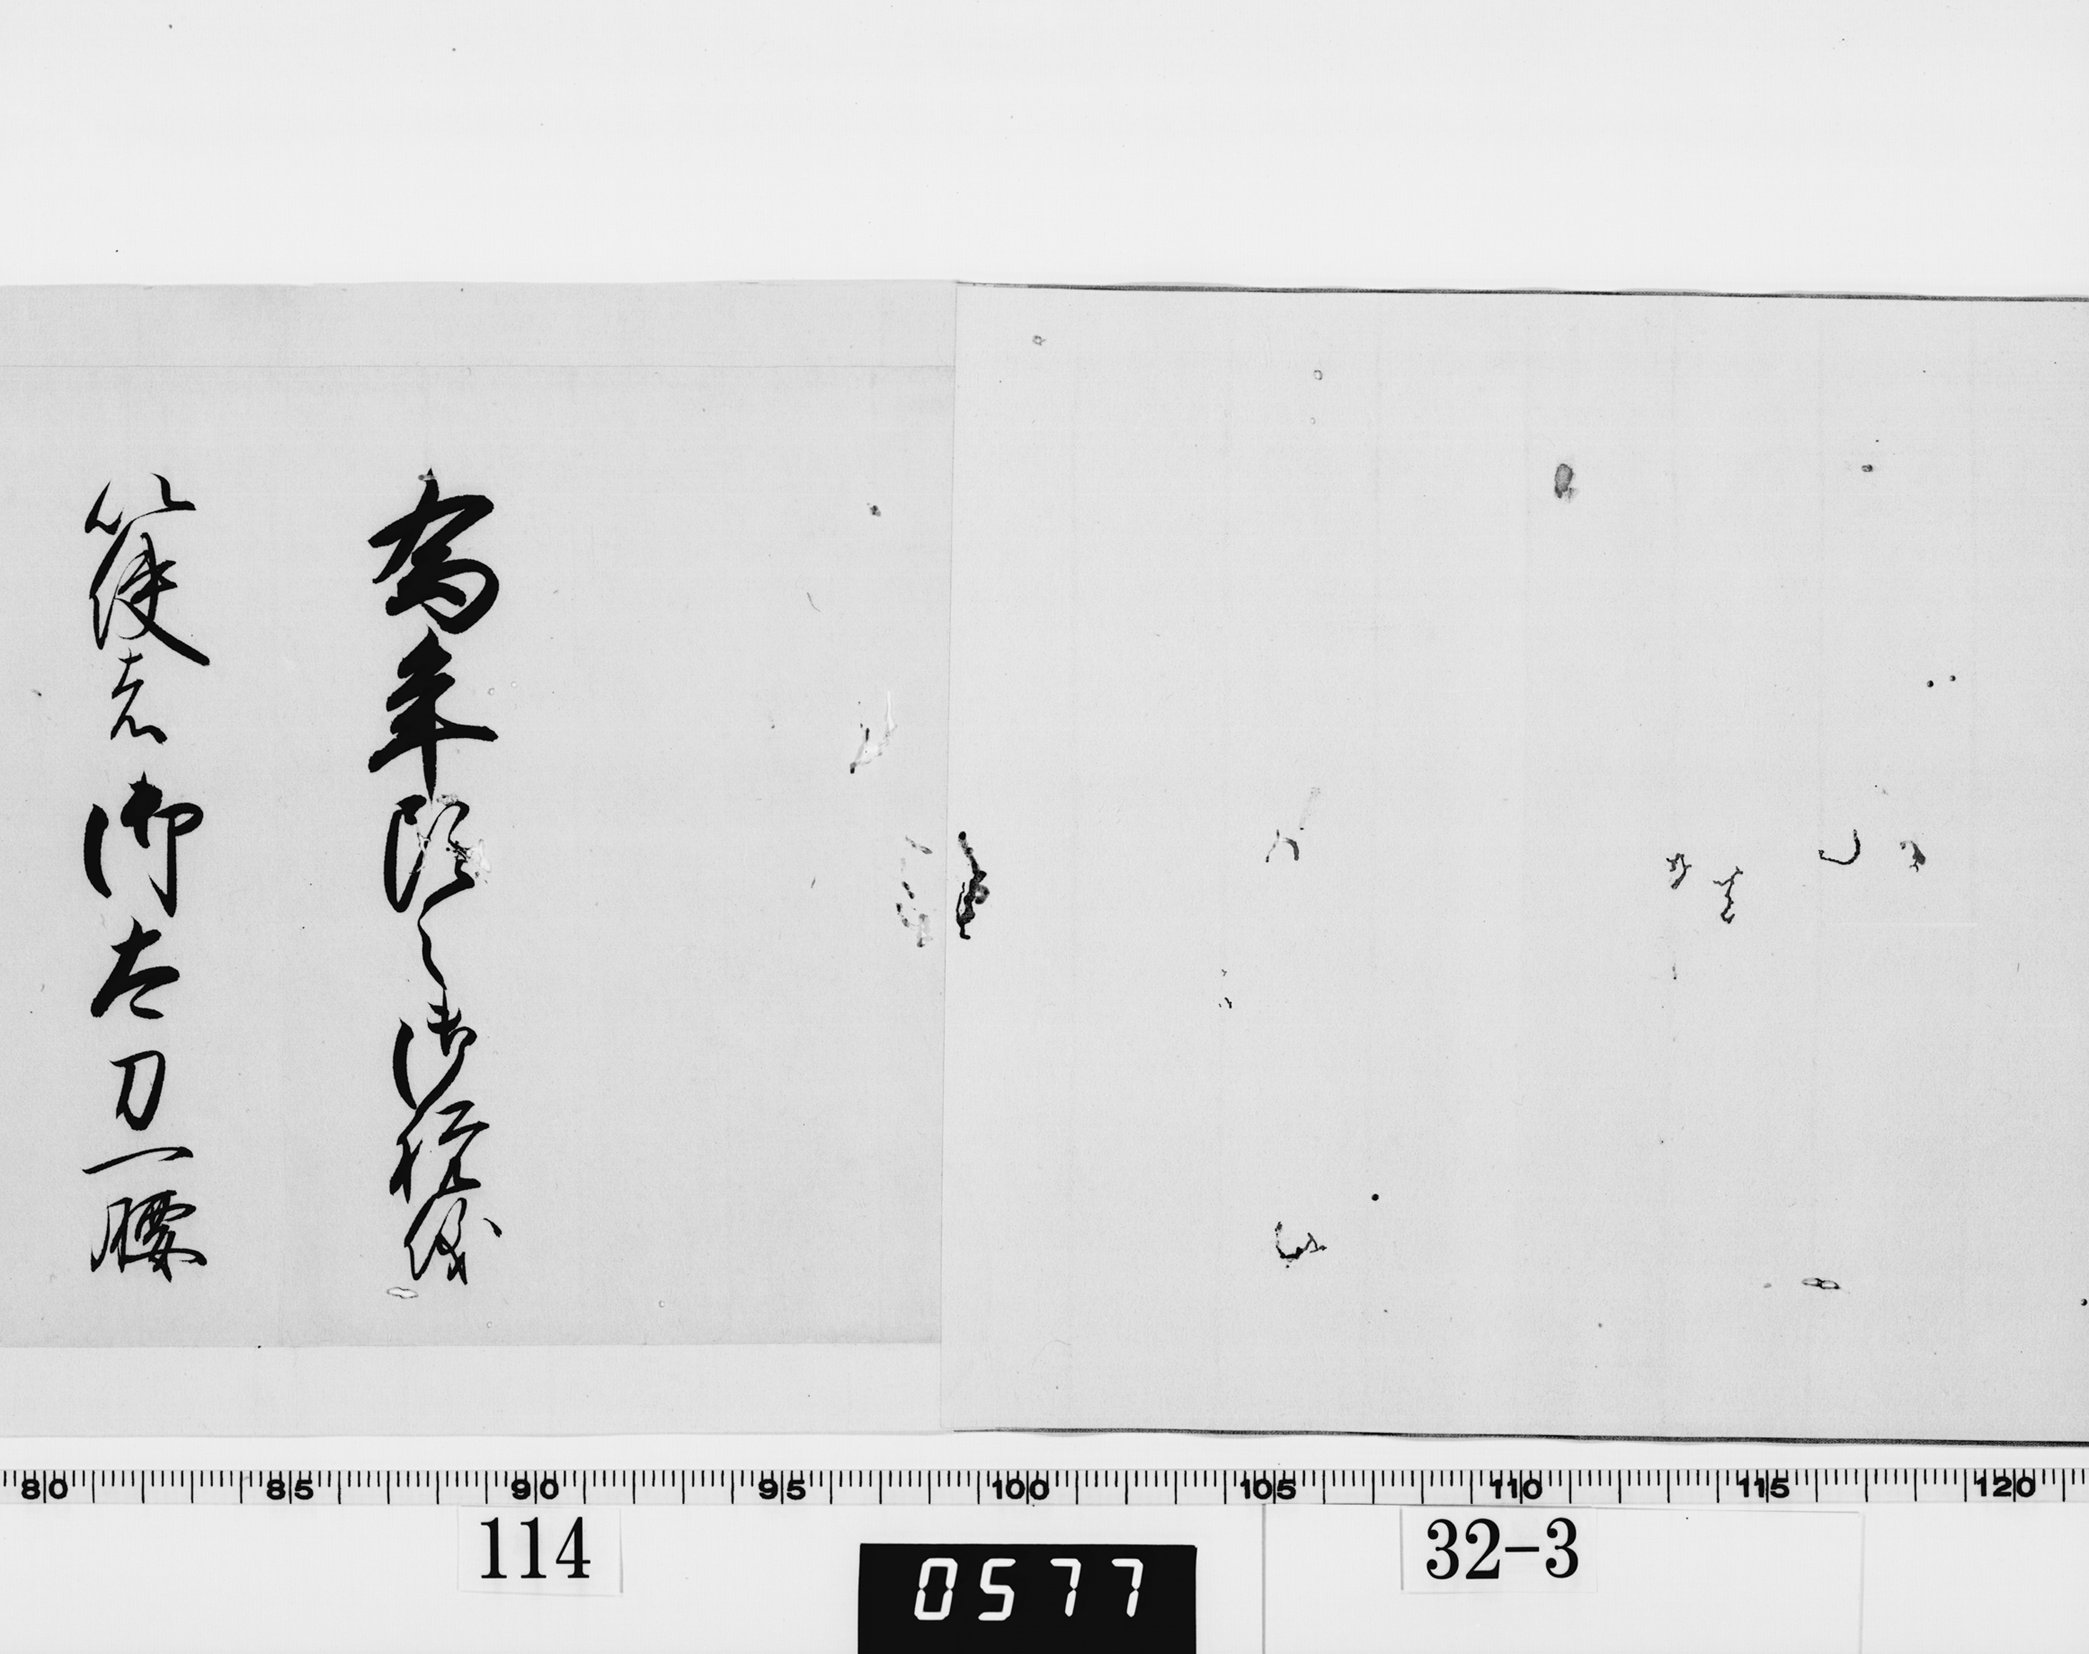 為年頭之御祝儀
篠志御太刀一腰
80 85 90 95 100 105 110 115 120
114
0577
32-3